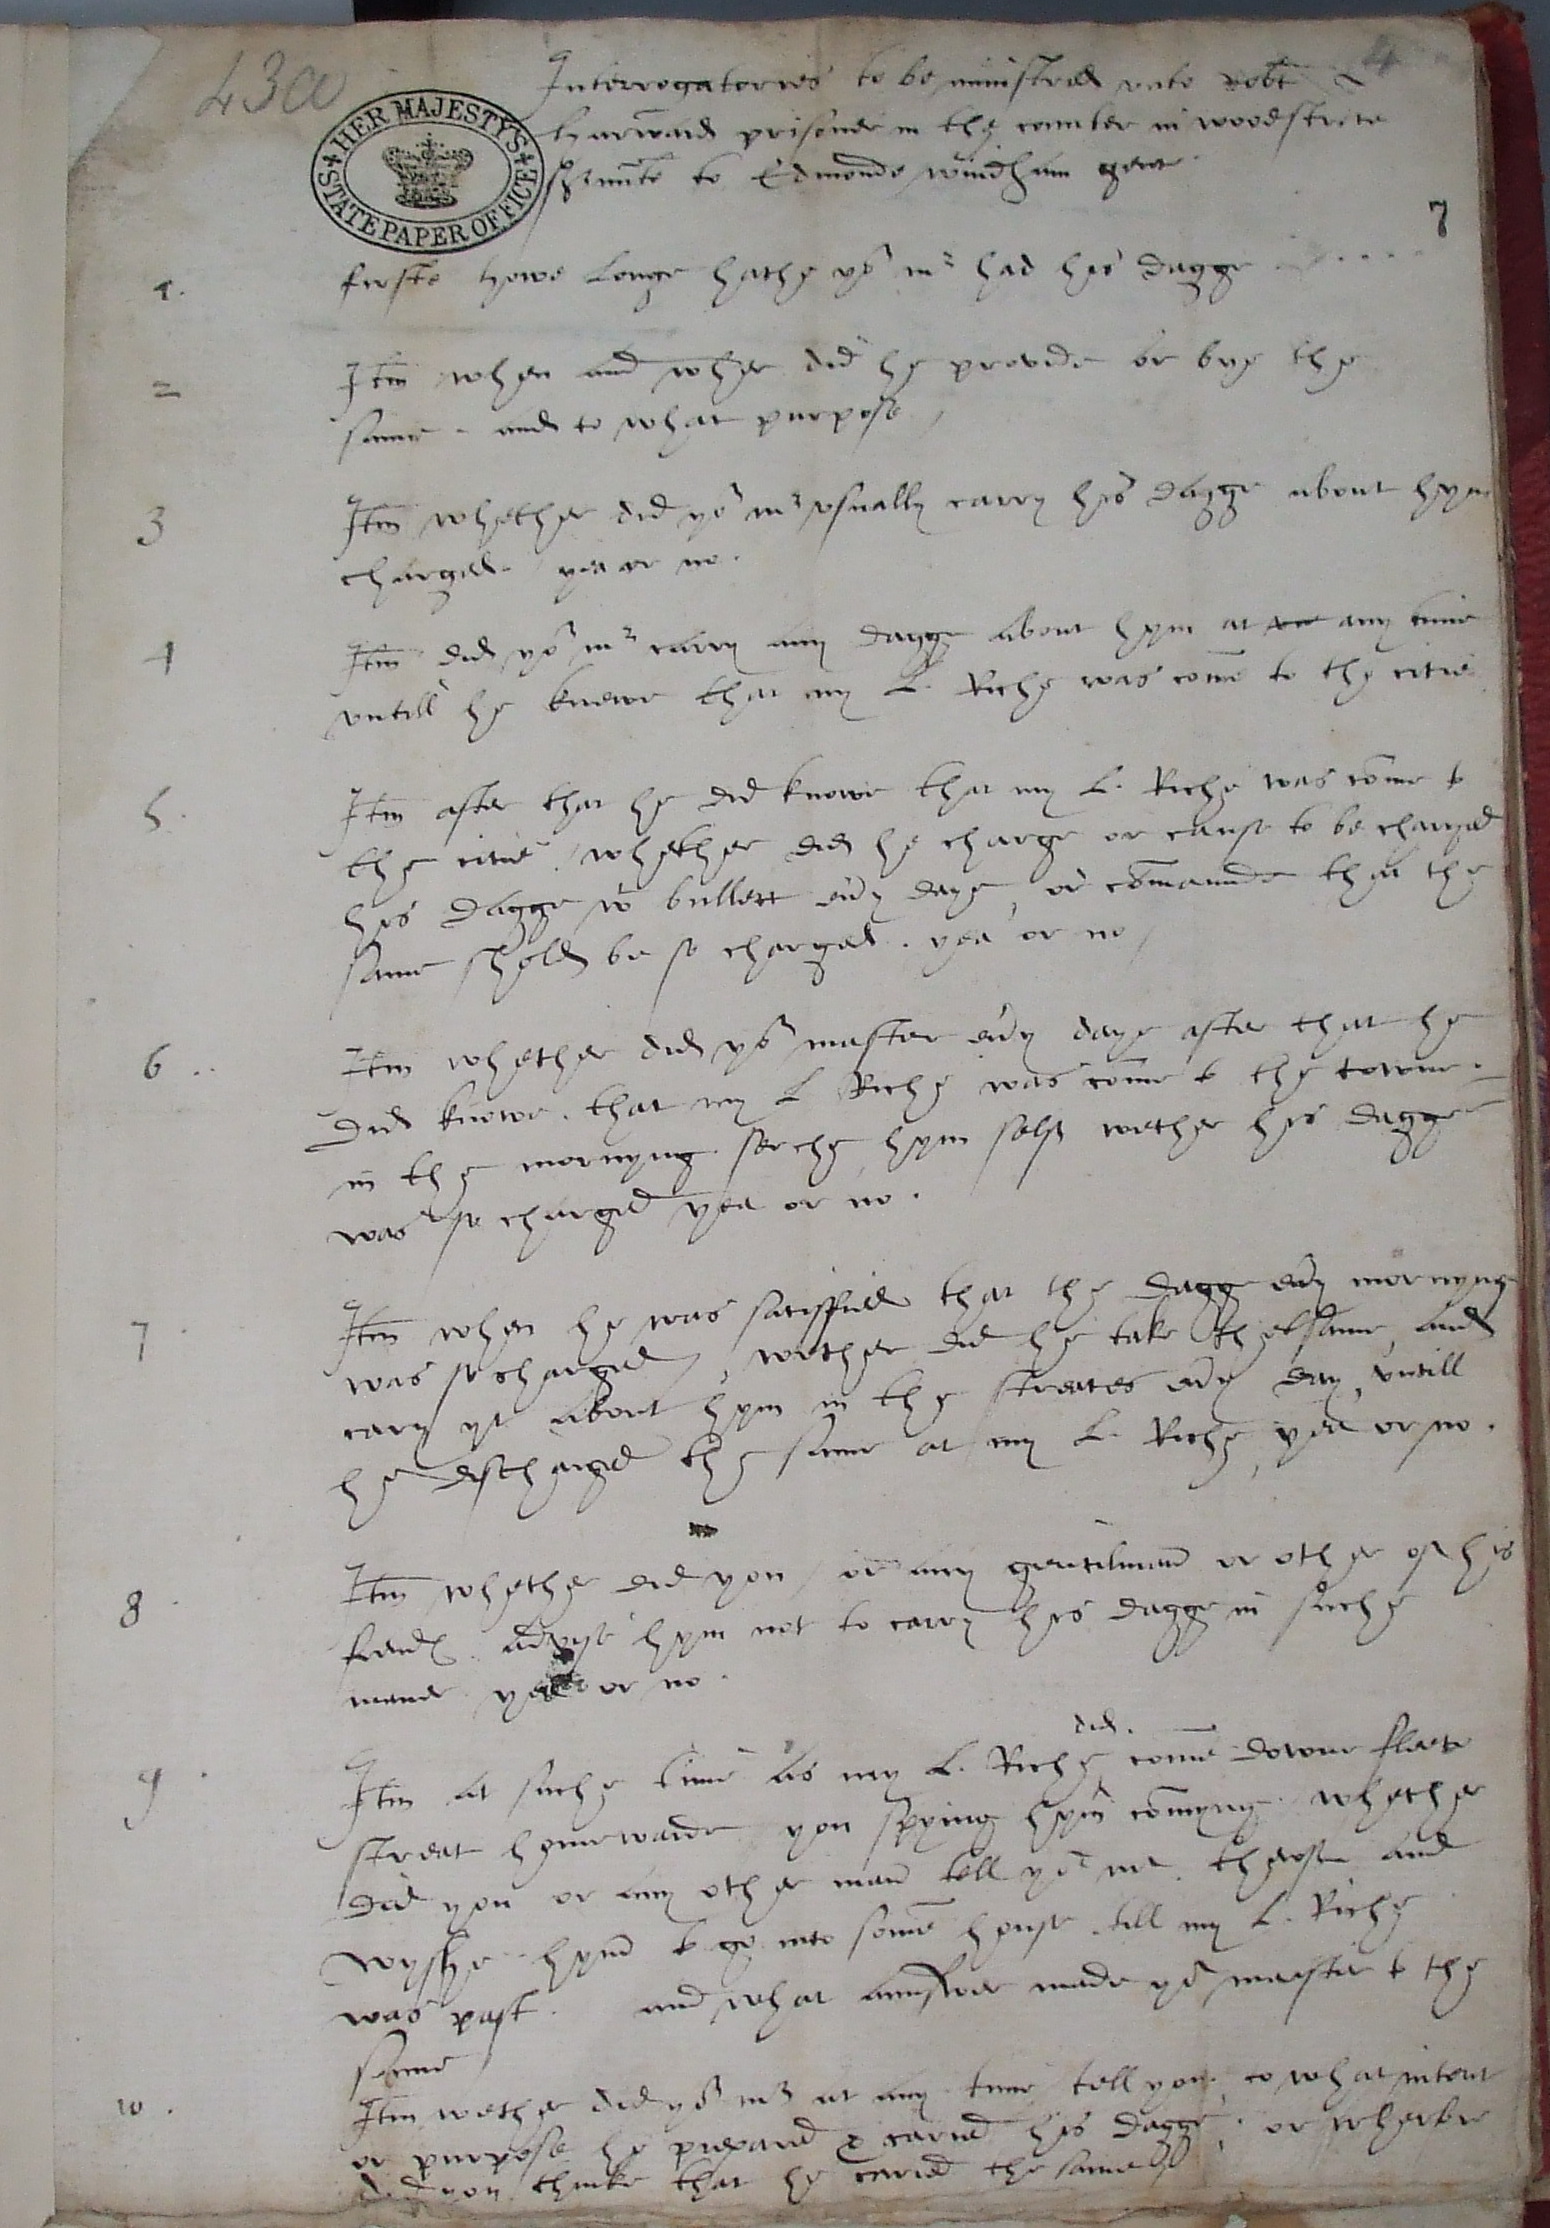 43a
4
Interrogatories to be ministred vnto Robt
Harward prisoner in the counter in woodstrete
s'unte to Edmonde windham gent
HER MAJESTY'S
STATE PAPER OFFICE
7
1. firste howe longe hathe yor mr had his dagge
2 Itm when and wher did he provide or bye the
same and to what purpose
3 Itm whether did yor mr vsually carry his dagge about hym
charged yea or no.
4 Itm did yor mr carry any dagge about hym at any time
vntill he knewe that my L. Riche was come to the citie
5. Itm after that he did knowe that my L. Riche was come to
the citie whether did he charge or cause to be charged
his dagge wt bullett eu'y daye, or comaunde that the
same shold be so charged. yea or no
6 .. Itm whether did yor master eu'y daye after that he
did knowe that my L Riche was come to the towne
in the mornyng serche hym self wether his dagge
was so charged yea or no.
7 Itm when he was satisfied that the dagg eu'y mornyng
was so charged, wether did he take the same, and
cary yt about hym in the streates eu'y day, vntill
he discharged the same at my L. Riche, yea or no.
8 Itm whether did you or any gentilman or other of his
frends advyse hym not to carry his dagge in suche
maner yea or no.
did.
9 . Itm at suche time as my L. Riche come downe fleete
streat homewarde you spying hym comyng whether
did you or any other man tell yor mr therof and
wyshe hym to go into some house till my L. Riche
was past. and what aunswer made yor master to the
same
10 . Itm wether did yor mr at any time tell you to what intent
or purpose he prepared & caried his dagge, or wherfore
did you thinke that he caried the same